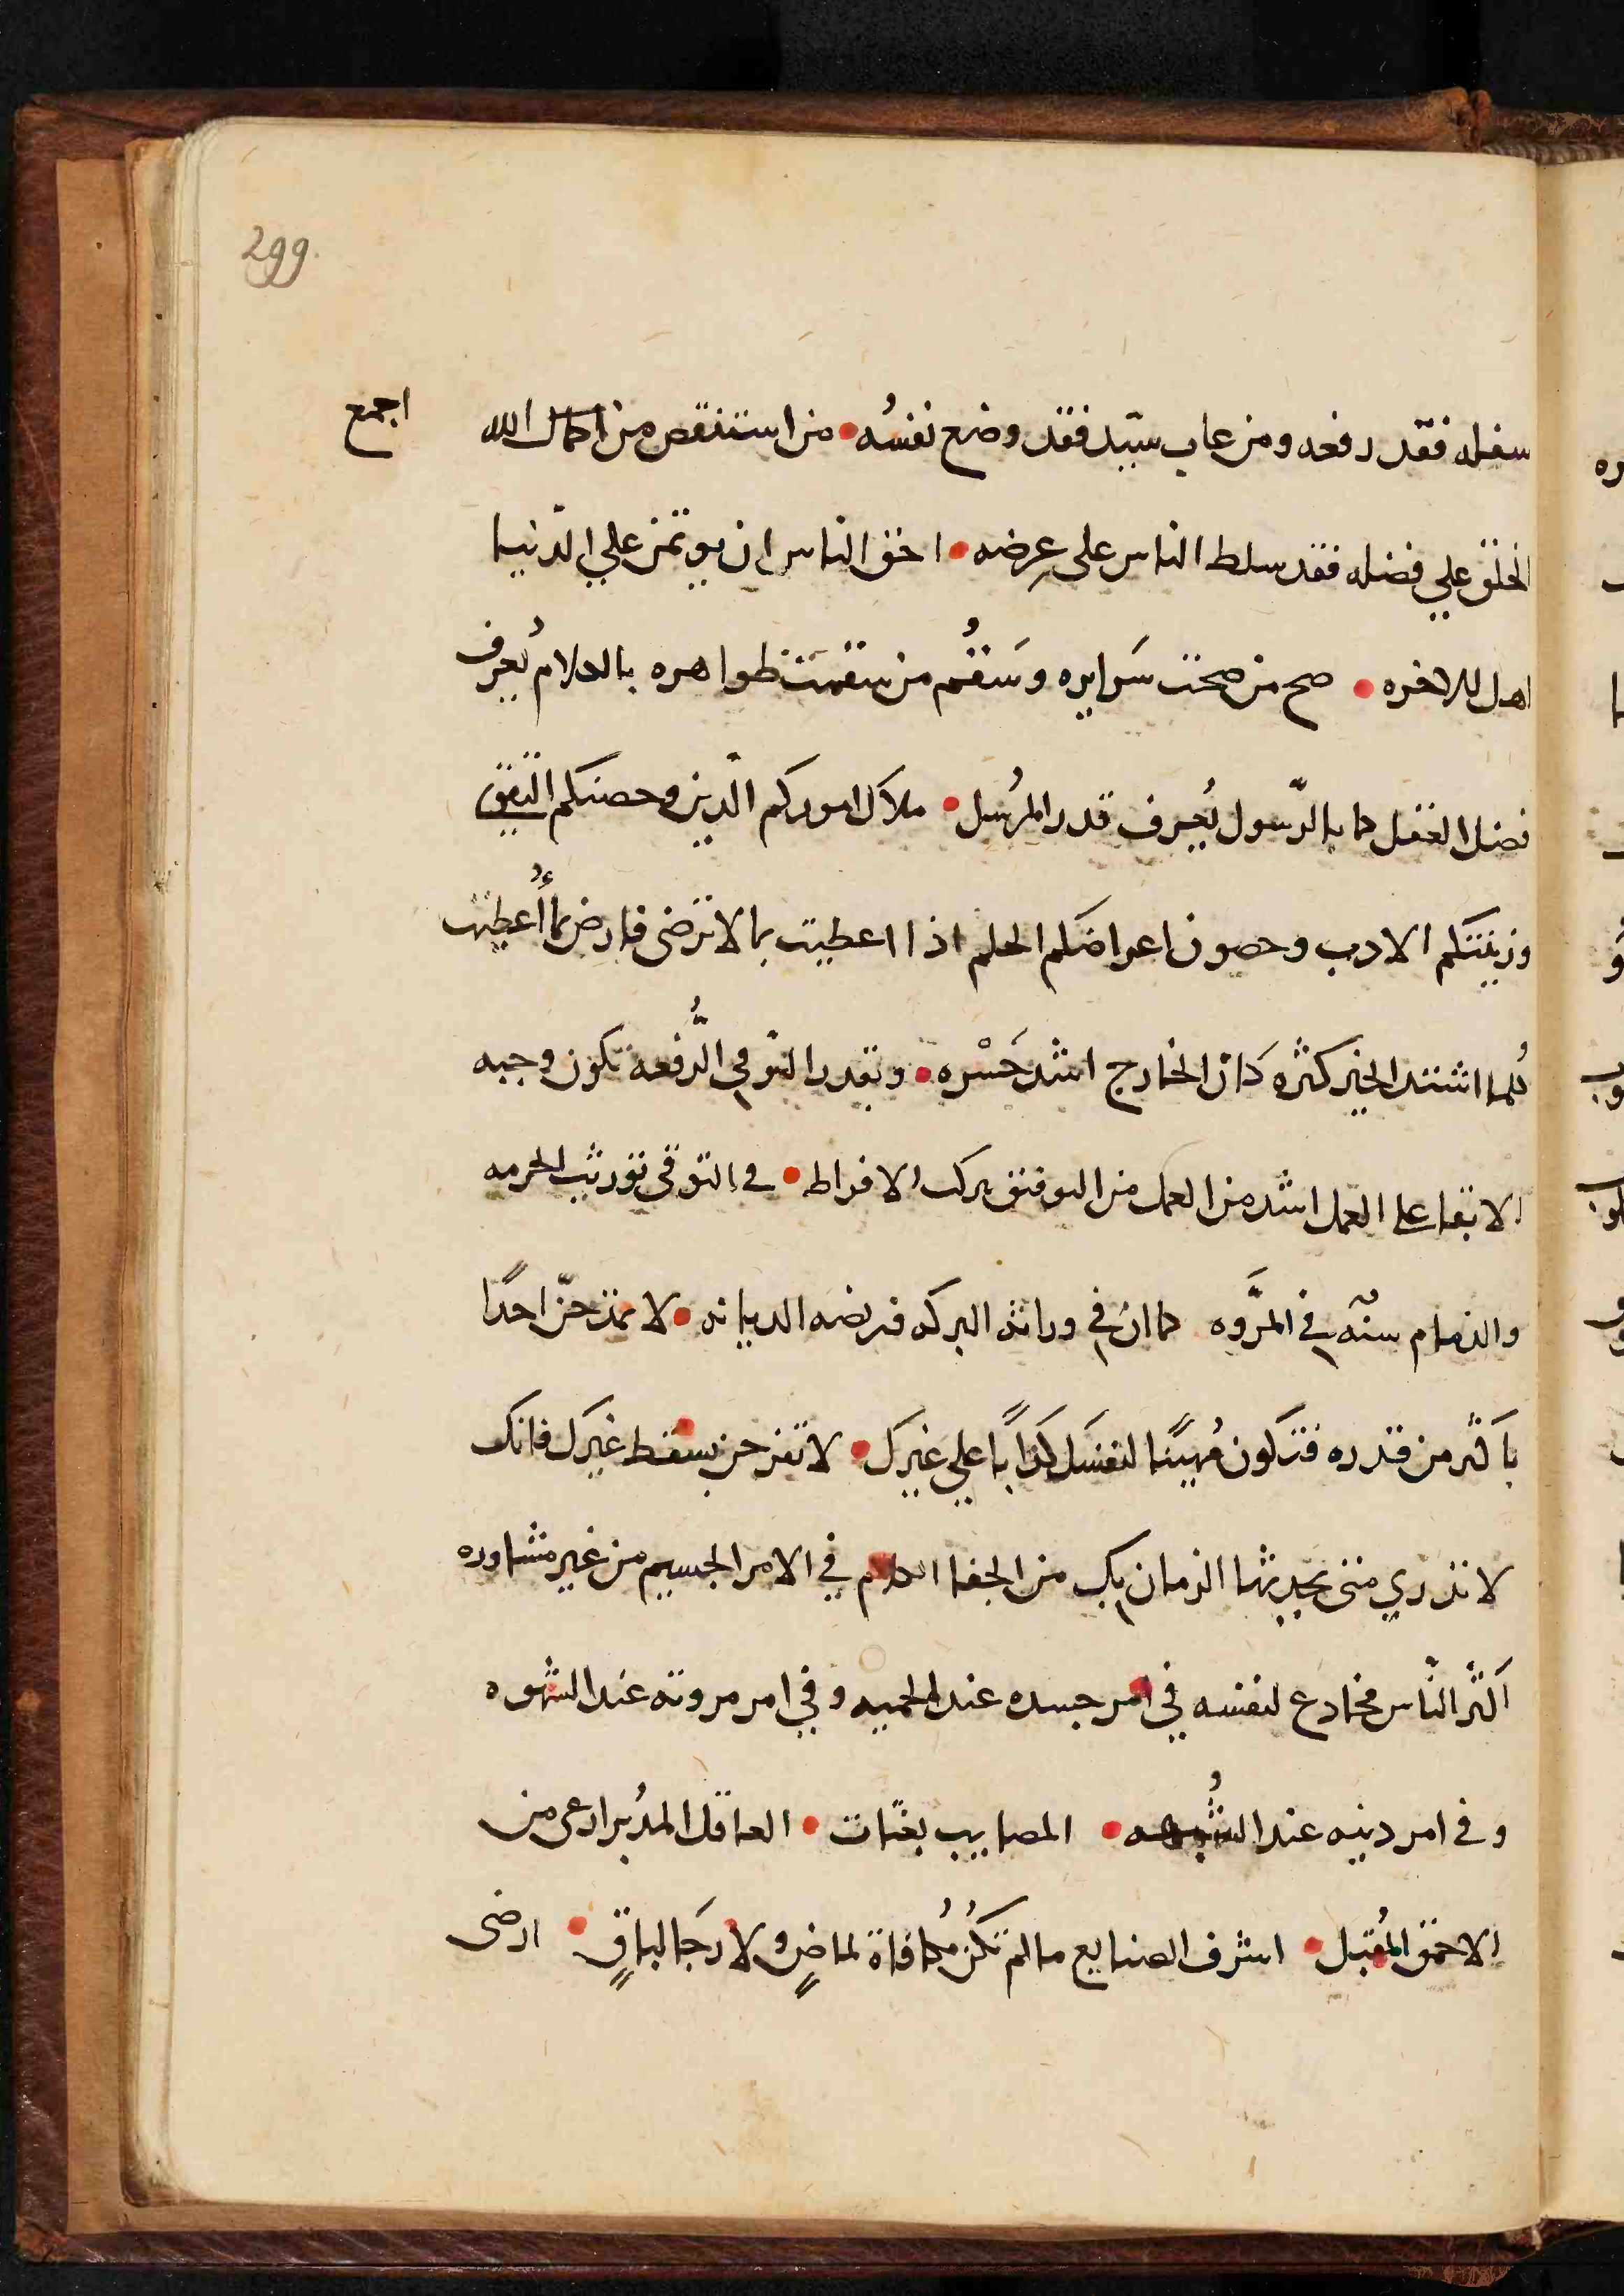 299
سفله فقد رفعه ومن عاب سيد فقد وضع نفسُه • من استنقص من اكمال الله اجمع
الخلق علي فضله فقد سلط الناس على عِرضه • احق الناس ان يوتمن علي الدّنيا
اهل للاخره • صح من صحت سَرايره وسَقُم من سقمت ظواهره بالكلام يُعرف
فضل العقل كما بالرّسول يُعرف قدر المرُسل • ملاك اموركم الدّين وحصنكم التقى
وزينتكم الادب وحصون اعراضكم الحلم اذا اعطيت بما لا ترضى فارض بما أُعطيت
كُلما اشتد الخير كثره كان الخارج اشد حَسْره • وبقدر التو في الرُّفعه تكون وجبه
الابقا على العمل اشد من العمل من التوفيق ترك الافراط • في التوقي توريث الحرمه
والذمام سنّه في المروَّه كما ان في وراثة البركه فريضه الديانه • لا تمدحنّ احدًا
باكثر من قدره فتكون مُهينًا لنفسَك كذّابًا علي غيرك • لا تفرحن بسقط غيرك فانك
لا تدري متى يحدثها الزمان بك من الجفا الكلام في الامر الجسيم من غير مشاوره
اكثر النّاس مخادع لنفسه في امر جسده عند الحميه وفي امر مروته عند الشهوه
وفي امر دينه عند الشُبهه • المصايب بغتات • العاقل المدُبر ارعى من
الاحمق المُقبل • اشرف الصنايع ما لم تكُن مُكافاة لماضٍ ولا رَجَا لباقٍ • ارضى